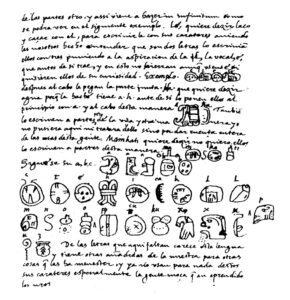 de las partes otro, y assi viene a hazer in infinitum como
se podra ver en el siguiente exemplo. Lé, quiere dezir laço
y caçar con el, para escrivirle con sus carateres aviendo
les nosotros hecho entender que son dos letras lo escrivian
ellos con tres puniendo a la aspiracion de la l, la vocal é,
que antes de si trae, y en esto no hierran aunque usense si
quisieren ellos de su curiosidad. Exemplo.
despues al cabo le pegan la parte junta. Ha que quiere dezir
agua porque la hach tiene a. h. ante de si lo ponen ellos al
principio con a. y al cabo desta manera
lo escriven a partes de la una y otra manera, yo
no pusiera aqui ni tratara dello sino por dar cuenta entera
de las cosas desta gente. Mainkati quiere dezir no quiero ellos
lo escriven a partes desta manera
Siguese su a.b.c.
De las letras que aqui faltan carece esta lengua
y tiene otras añadidas de la nuestra para otras
cosas que las ha menester, y ya no usan para nada destos
sus carateres especialmente la gente moça que an aprendido
los nros